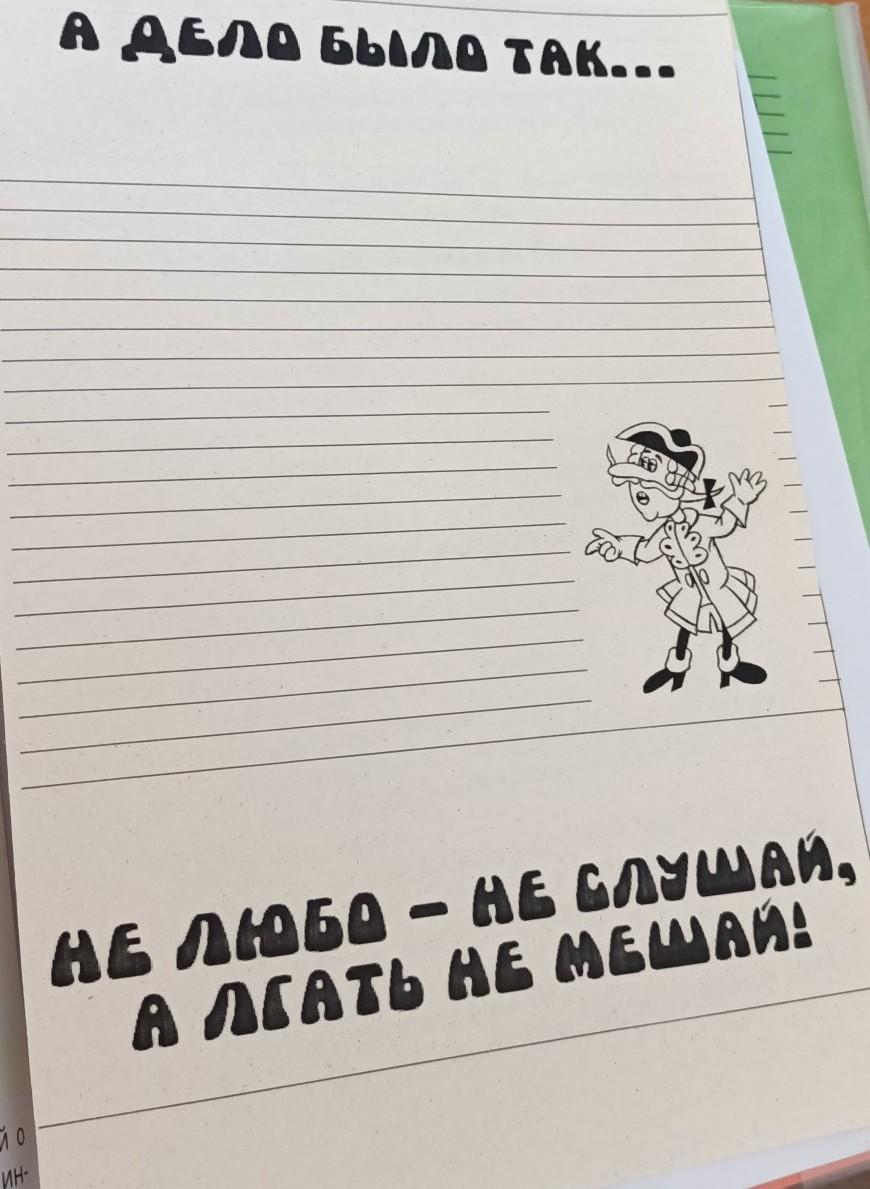 А ДЕЛО БЫЛО ТАК...
НЕ ЛЮБО – НЕ СЛУШАЙ,
А ЛГАТЬ НЕ МЕШАЙ!
Й О
ИН-